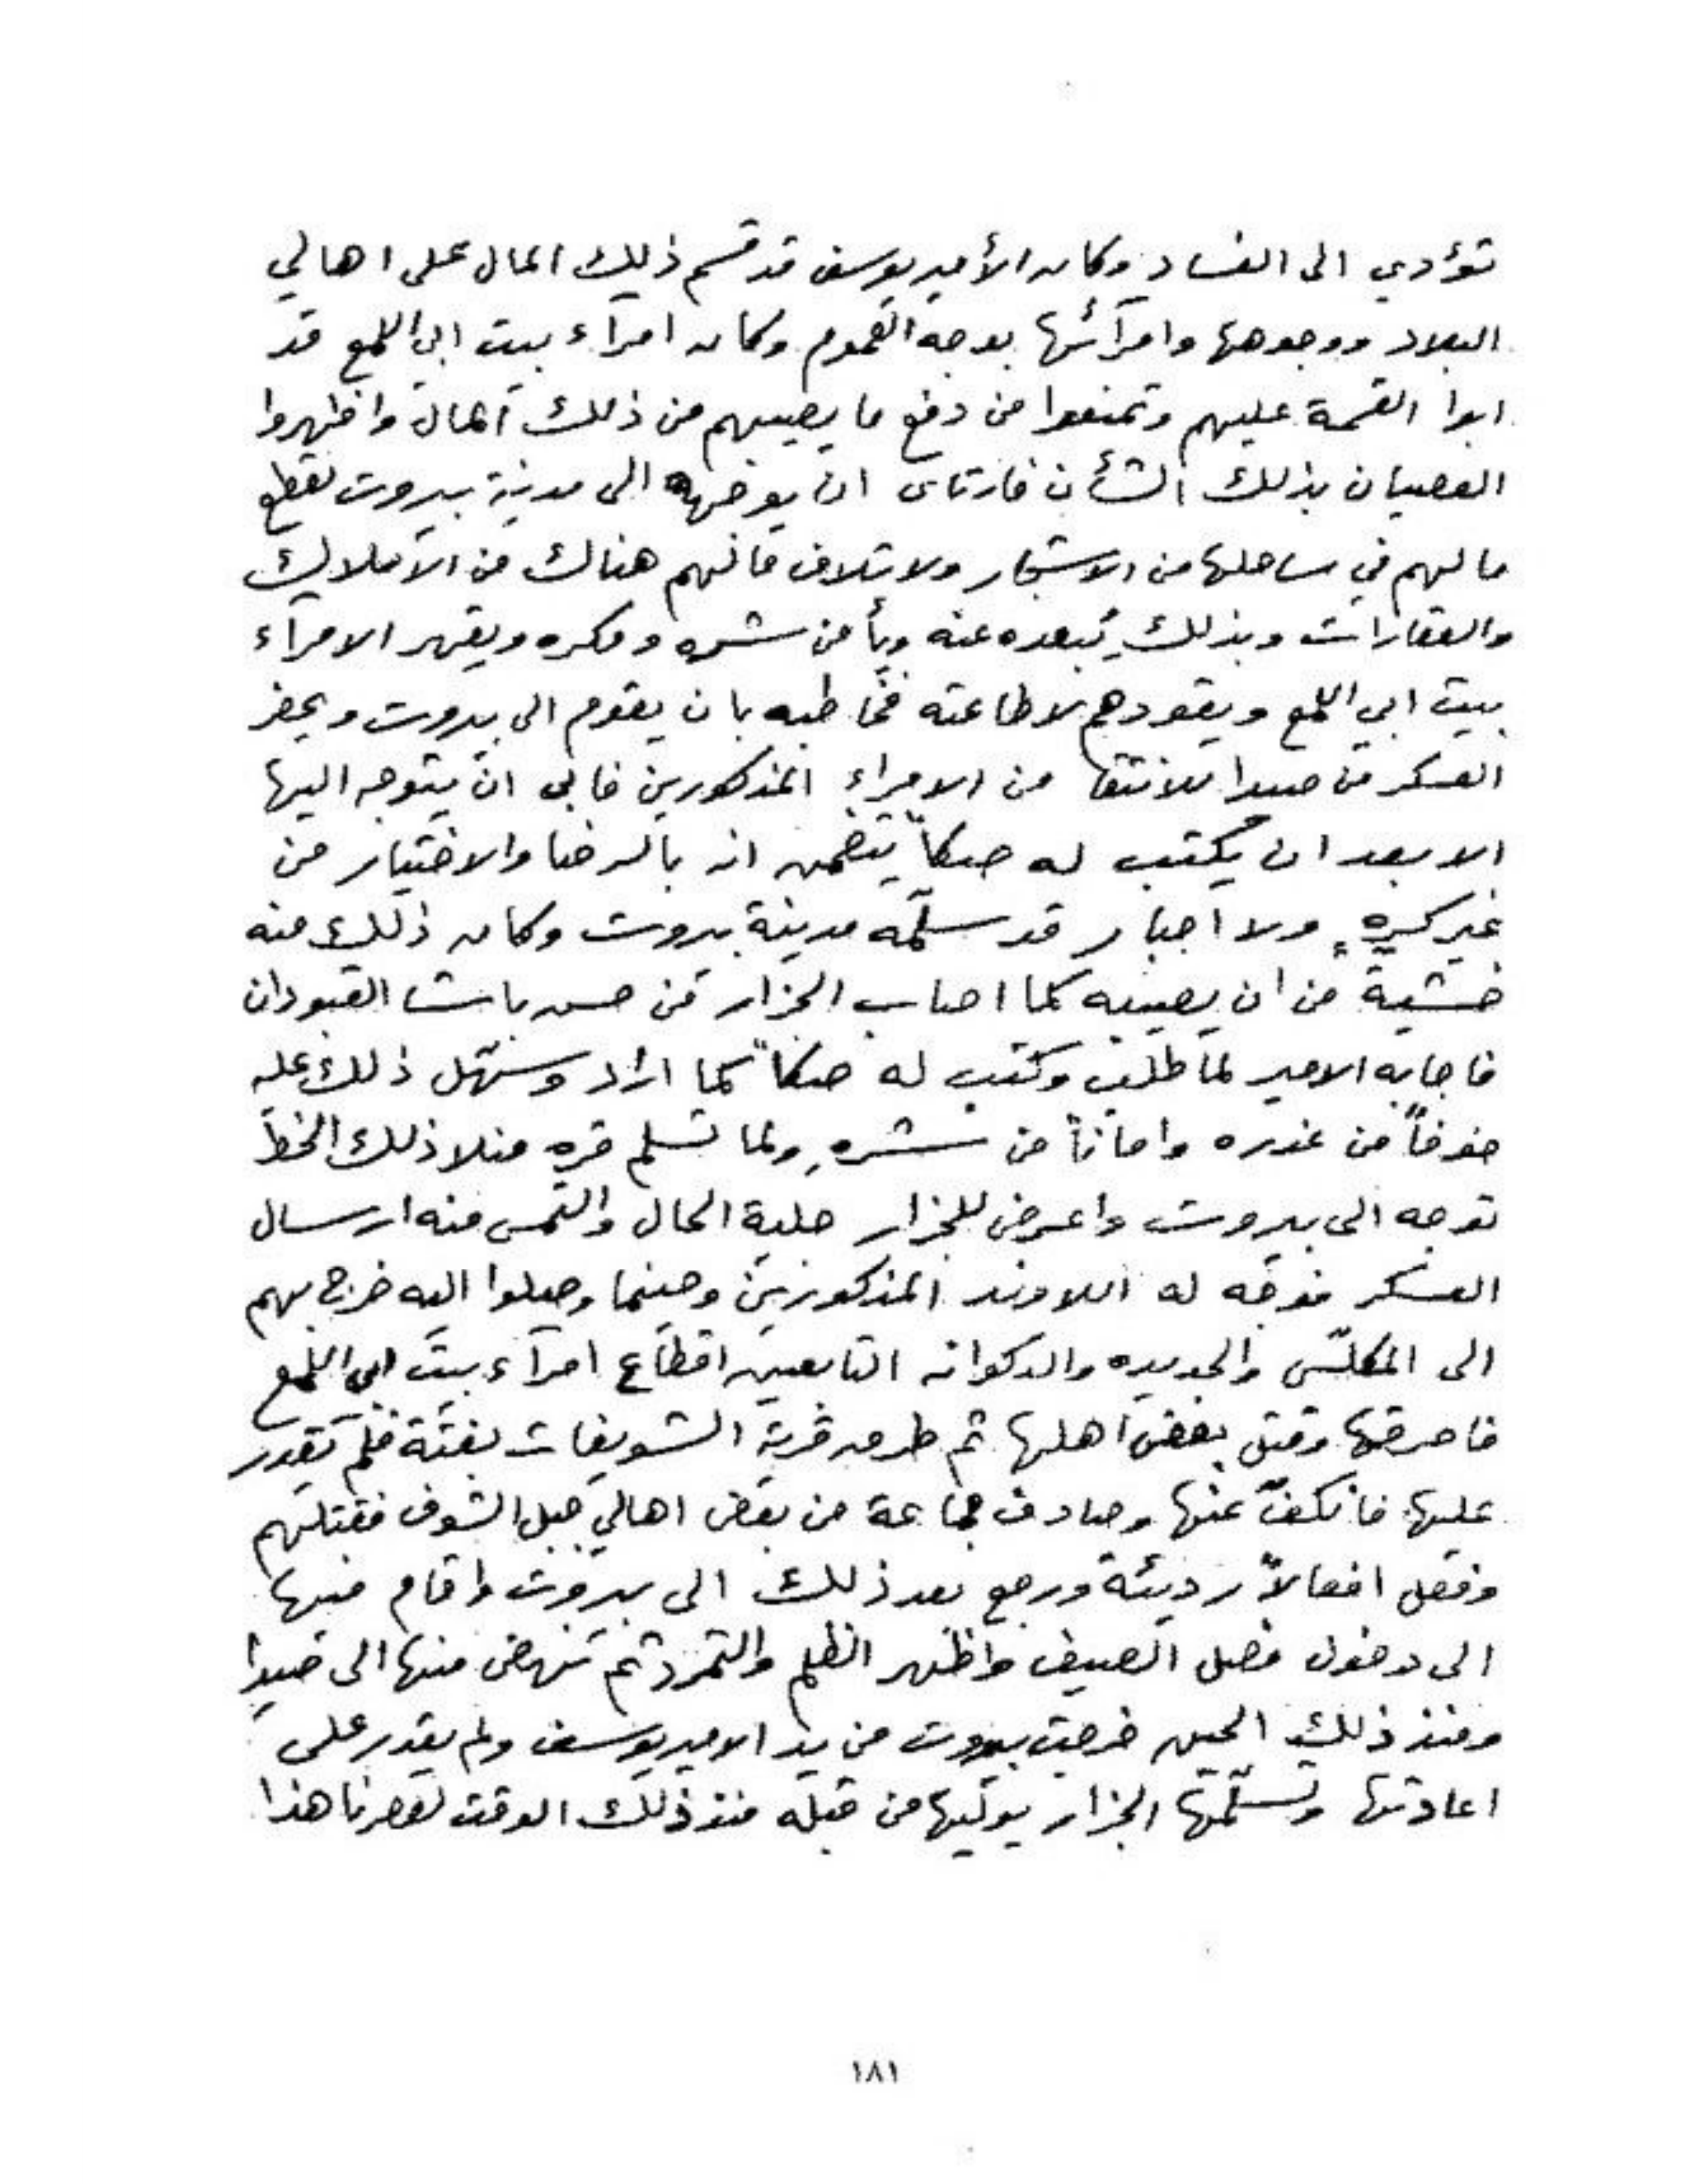 تؤدي الى الفساد وكان الأمير يوسف قد قسم ذلك المال على اهالي
البلاد ووجوهها وامرآئها بوجه العموم وكان امرآء بيت ابي اللمع قد
ابوا القسمة عليهم وتمنعوا من دفع ما يصيبهم من ذلك المال واظهروا
العصيان بذلك الشأن فارتاى ان يوجهه الى مدينة بيروت لقطع
ما لهم في ساحلها من الاشجار ولاتلاف مالهم هناك من الاملاك
والعقارات وبذلك يُبعده عنه ويأمن شره ومكره ويقهر الامرآء
بيت ابي اللمع ويقودهم لاطاعته فخاطبه بان يقوم الى بيروت ويحضر
العسكر من صيدا للانتقا من الامراء المذكورين فابى ان يتوجه اليها
الا بعد ان يكتب له صكاً يتضمن انه بالرضا والاختيار من
غير كرهٍ ولا اجبار قد سلّمه مدينة بيروت وكان ذلك منه
خشية من ان يصيبه كما اصاب الجزار من حسن باشا القبودان
فاجابه الامير لما طلب وكتب له صكاً كما اراد وسهّل ذلك عليه
خوفاً من غدره واماناً من شره ولما تسلم قره منلا ذلك الخط
توجه الى بيروت واعرض للجزار حلية الحال والتمس منه ارسال
العسكر فوجّه له اللاوند المذكورين وحينما وصلوا اليه خرج بهم
الى المكلّس والجديده والدكوانه التابعين اقطاع امرآء بيت ابي اللمع
فاحرقها وقتل بعض اهلها ثم طرق قرية الشويفات بغتة فلم يقدر
عليها فانكفّ عنها وصادف جماعة من بعض اهالي جبل الشوف فقتلهم
وفعل افعالاً رديئة ورجع بعد ذلك الى بيروت واقام فيها
الى دخول فصل الصيف واظهر الظلم والتمرد ثم نهض منها الى صيدا
ومنذ ذلك الحين خرجت بيروت من يد الامير يوسف ولم يقدر على
اعادتها وتسلّمها الجزار يولّيها من قبله منذ ذلك الوقت لعصرنا هذا
١٨١